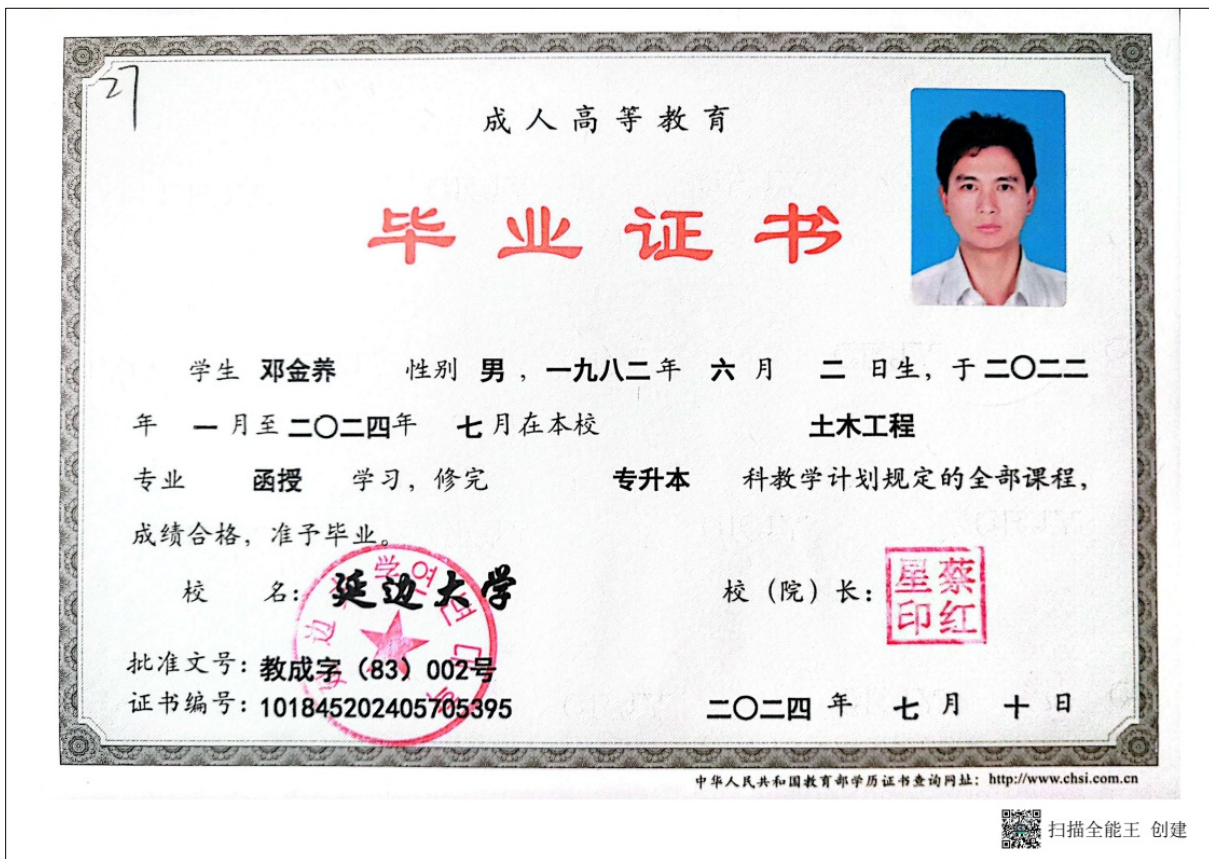 27
成人高等教育
毕业证书
学生 邓金养 性别 男 ,一九八二年 六 月 二 日生,于二〇二二
年 一 月至二〇二四年 七 月在本校 土木工程
专业 函授 学习,修完 专升本 科教学计划规定的全部课程,
成绩合格,准予毕业。
校 名: 延边大学
校(院)长:
蔡红星印
批准文号:教成字(83)002号
证书编号:101845202405705395
二〇二四 年 七 月 十 日
中华人民共和国教育部学历证书查询网址: http://www.chsi.com.cn
扫描全能王 创建